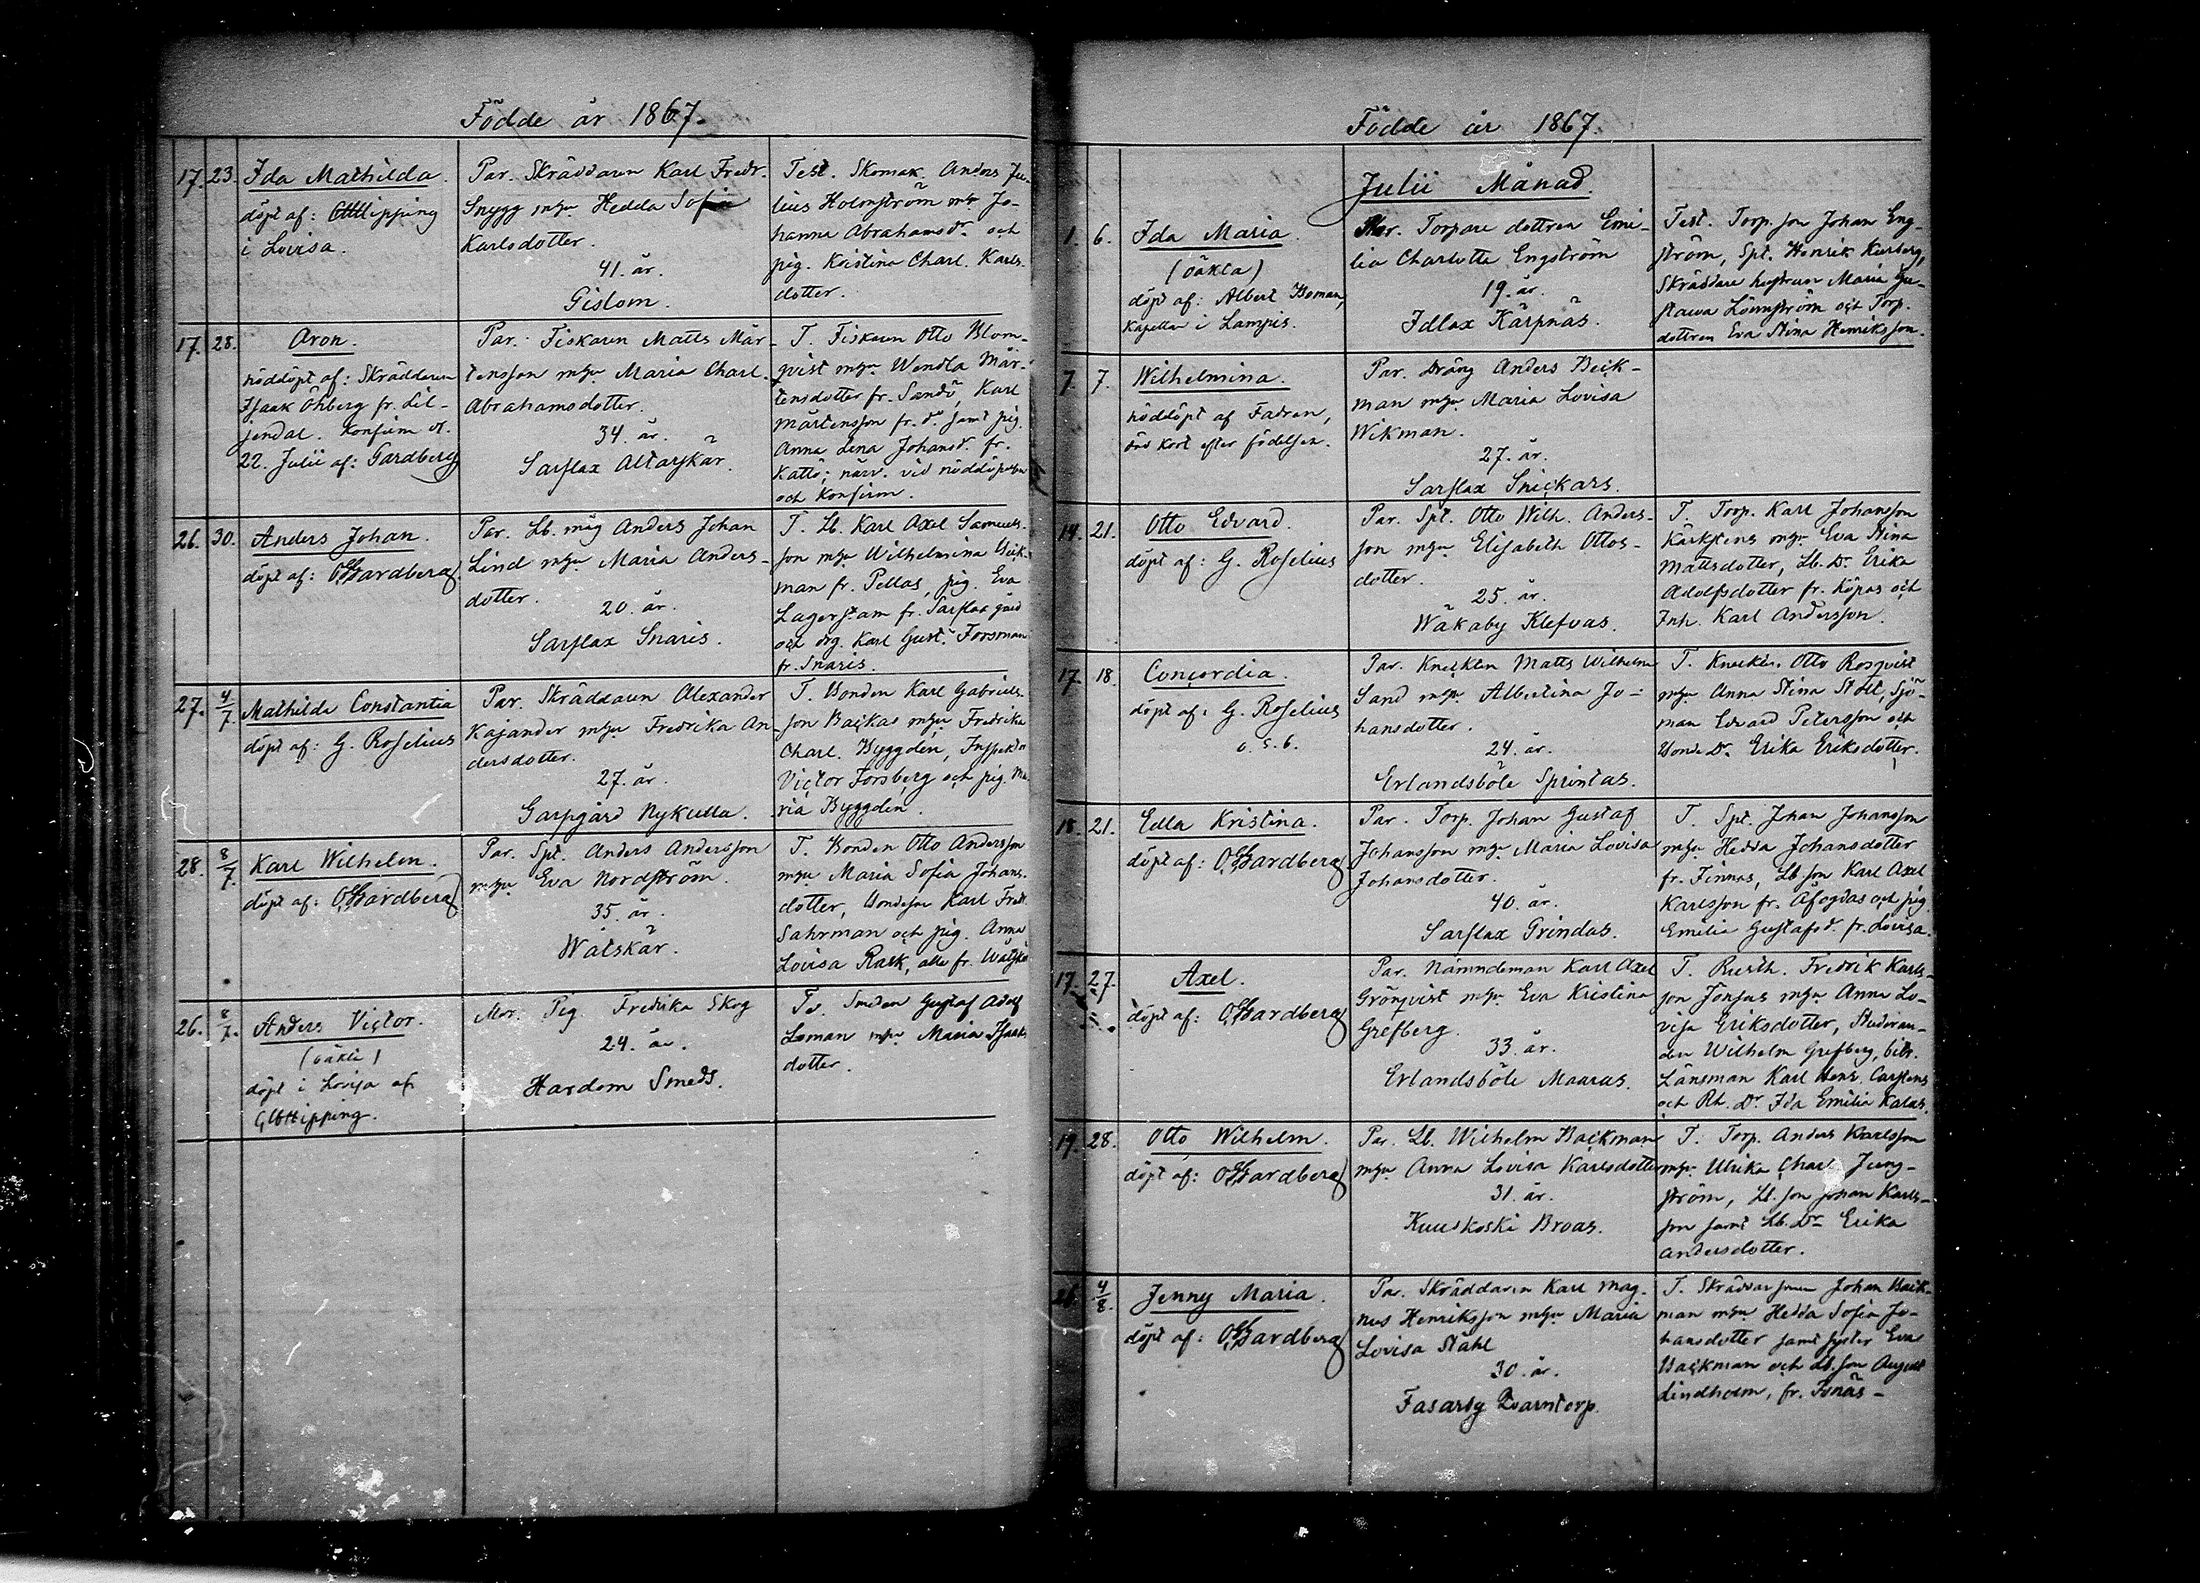 Födde år 1867.
17. 23. Ida Mathilda.
döpt af: Hipping
i Lovisa.
Par. Skräddaren Karl Fredr.
Snygg m/hu Hedda Sofia
Karlsdotter.
41. år.
Gislom.
Test. Skomak. Anders Ju-
lius Holmström m/hu Jo-
hanna Abrahamsdr. och
pig. Kristina Charl. Karls-
dotter.
17. 28. Aron.
nöddöpt af: Skräddaren
Isaak Öhberg fr. Lil-
jendal. Konfirm. d.
22. Julii af: Gardberg
Par. Fiskaren Matts Mår-
tensson m/hu Maria Charl.
Abrahamsdotter.
34. år.
Sarflax Altarskär.
T. Fiskaren Otto Blom-
qvist m/hu Wendla Mår-
tensdotter fr. Sandö, Karl
Mårtensson fr. do. samt pig.
Anna Lena Johansdr. fr.
Kattö; närv. vid nöddöpelsen
och Konfirm.
26. 30. Anders Johan.
döpt af: OGardberg
Par. Lb. måg Anders Johan
Lind m/hu Maria Anders-
dotter.
20. år.
Sarflax Snaris.
T. Lb. Karl Axel Samuels-
son m/hu Wilhelmina Bäck-
man fr. Pellas, pig. Eva
Lagerstam fr. Sarflax gård
och drg. Karl Gust. Forsman
fr. Snaris.
27. 4/7. Mathilda Constantia
döpt af: G. Roselius
Par. Skräddaren Alexander
Kajander m/hu Fredrika An-
dersdotter.
27. år.
Garpgård Nykulla.
T. Bonden Karl Gabriels-
son Backas m/hu Fredrika
Charl. Byggdén, Inspektor
Victor Forsberg och pig. Ma-
ria Byggdén.
28. 8/7. Karl Wilhelm.
döpt af: OGardberg
Par. Spt. Anders Andersson
m/hu Eva Nordström.
35. år.
Wåtskär.
T. Bonden Otto Andersson
m/hu Maria Sofia Johans-
dotter, Bondeson Karl Fredr.
Sahrman och pig. Anna
Lovisa Rask, alla fr. Wåtskär
26. 8/7. Anders Victor.
(oäkta)
döpt i Lovisa af
Hipping.
Mor. Pig. Fredrika Skog
24. år.
Hardom Smeds.
T. Smeden Gustaf Adolf
Loman m/hu Maria Isaks-
dotter.
Födde år 1867.
Julii Månad.
1. 6. Ida Maria.
(oäkta)
döpt af: Albert Homan,
Kapellan i Lampis.
Mor. Torpare dottren Emi-
lia Charlotta Engström
19. år.
Idlax Kärpnäs.
Test. Torp. son Johan Eng-
ström, Spt. Henrik Kurberg,
Skräddare hustrun Maria Gu-
stava Lönnström och Torp.
dottren Eva Stina Henriksson.
7. 7. Wilhelmina.
nöddöpt af Fadren,
död kort efter födelsen.
Par. Dräng Anders Beck-
man m/hu Maria Lovisa
Wikman.
27. år.
Sarflax Snickars.
14. 21. Otto Edvard.
döpt af: G. Roselius
Par. Spt. Otto Wilh. Anders-
son m/hu Elisabeth Ottos-
dotter.
25. år.
Wäkaby Klefvas.
T. Torp. Karl Johansson
Karstens m/hu Eva Stina
Mattsdotter, Lb. Dr. Erika
Adolfsdotter fr. Köpas och
Inh. Karl Andersson.
17. 18. Concordia.
döpt af: G. Roselius
o. s. b.
Par. Knekten Matts Wilhelm
Sand m/hu Albertina Jo-
hansdotter.
24. år.
Erlandsböle Sprintas.
T. Knekten Otto Rosqvist
m/hu Anna Stina Stolt, Sjö-
man Edvard Petersson och
Bonde Dr. Erika Eriksdotter.
18. 21. Edla Kristina.
döpt af: OGardberg
Par. Torp. Johan Gustaf
Johansson m/hu Maria Lovisa
Johansdotter.
40. år.
Sarflax Grindas.
T. Spt. Johan Johansson
m/hu Hedda Johansdotter
fr. Finnas, Lb son Karl Axel
Karlsson fr. Åfogdas och pig.
Emilia Gustafsd. fr. Lovisa.
17. 27. Axel.
döpt af: OGardberg
Par. Nämndeman Karl Axel
Grönqvist m/hu Eva Kristina
Grefberg.
33. år.
Erlandsböle Maaras.
T. Rusth. Fredrik Karls-
son Jönsas m/hu Anna Lo-
visa Eriksdotter, Studeran-
den Wilhelm Grefberg, bitr.
Länsman Karl Henr. Carstens
och Rh. Dr. Ida Emilia Kalas.
19. 28. Otto Wilhelm.
döpt af: OGardberg
Par. Lb. Wilhelm Backman
m/hu Anna Lovisa Karlsdotter
31. år.
Kuuskoski Broas.
T. Torp. Anders Karlsson
m/hu Ulrika Charl. Ljung-
ström, Lb. son Johan Karls-
son samt Lb. Dr. Erika
Andersdotter.
26. 4/8. Jenny Maria.
döpt af: OGardberg
Par. Skräddaren Karl Mag-
nus Henriksson m/hu Maria
Lovisa Ståhl
30. år.
Fasarby Qvarntorp.
T. Skräddaren Johan Back-
man m/hu Hedda Sofia Jo-
hansdotter samt syster Eva
Backman och Lb. son August
Lindholm, fr. Isnäs-